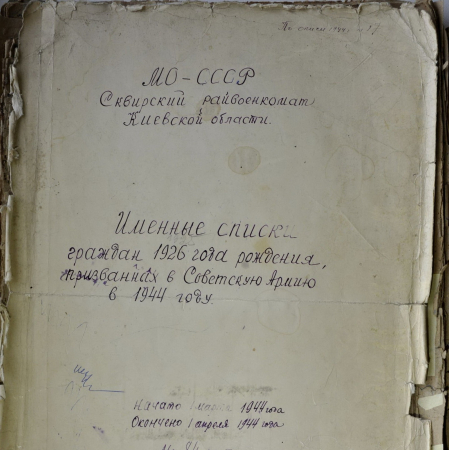 МО-СССР
Сквирский райвоенкомат
Киевской области.
Именные списки
граждан 1926 года рождения,
призванных в Советскую Армию
в 1944 году.
Начато 1 1944 года
Окончено 1 апреля 1944 года